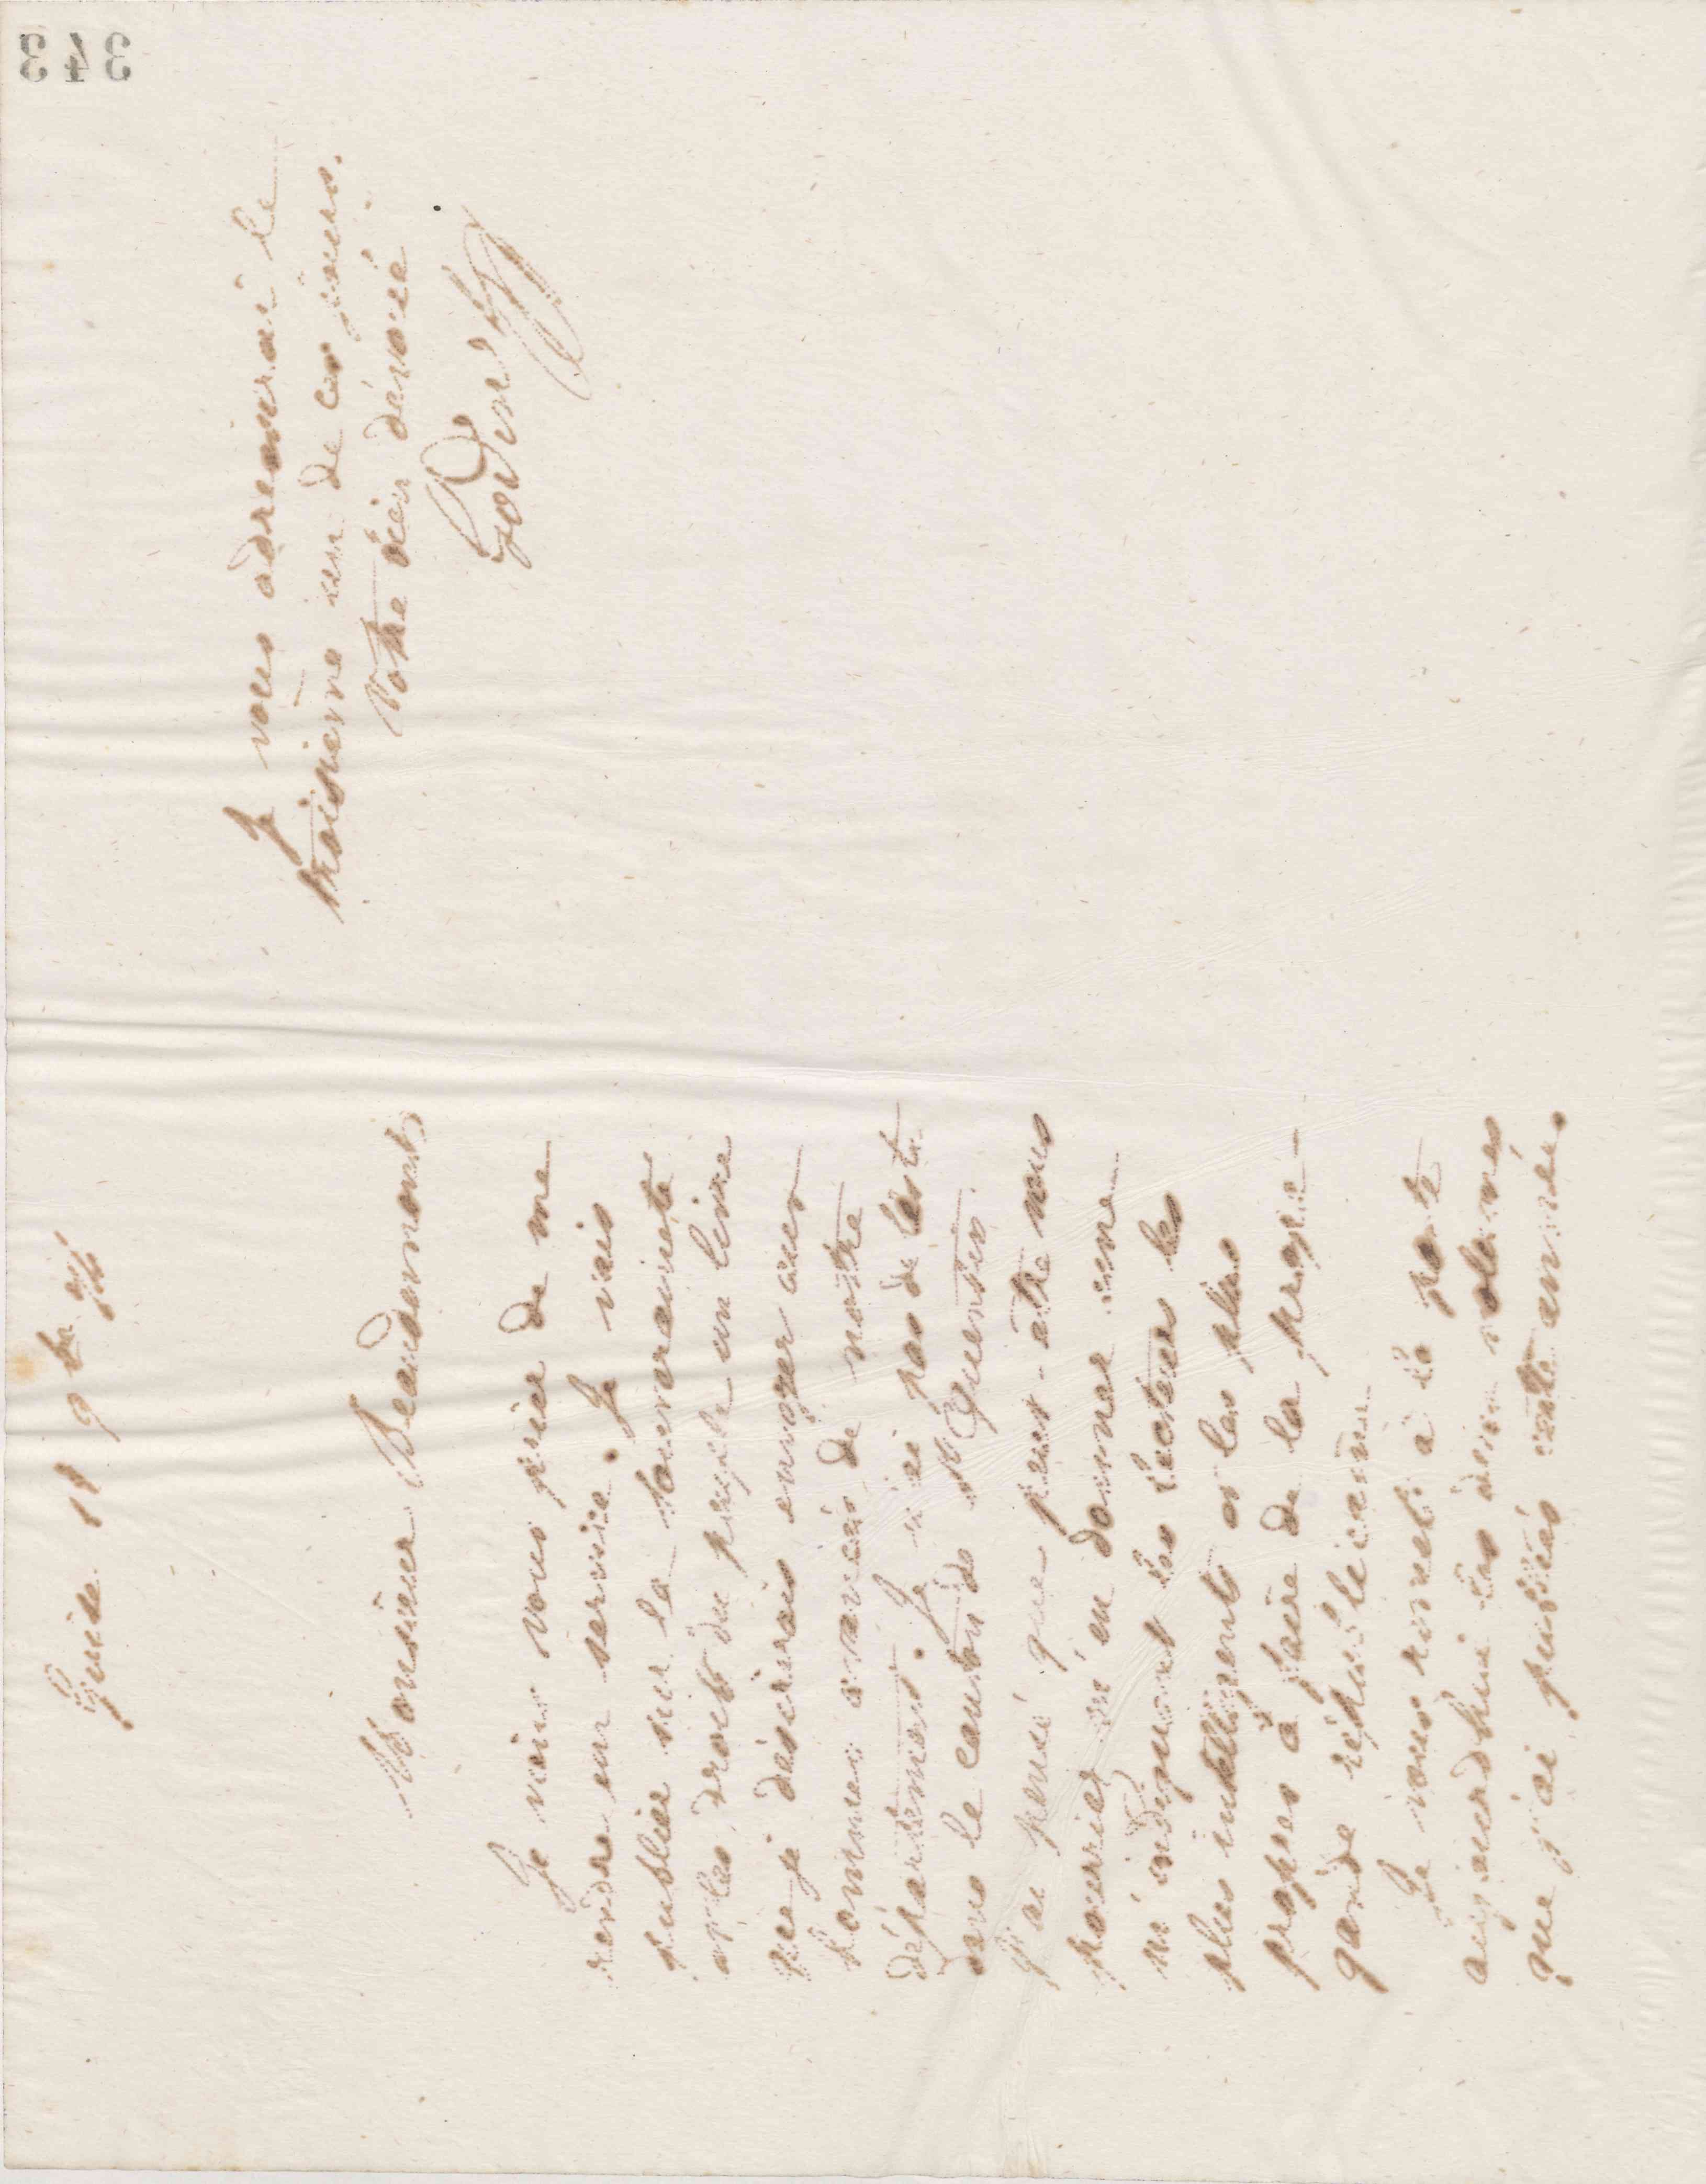 Guise 18 9bre 74
Monsieur Beaudemont
Je viens vous prier de me
rendre un service. Je vais
publier sur la souveraineté
et les droits du peuple un livre
que je désirerais envoyer aux
hommes avancés de notre
département. Je n'ai pas de liste
dans le canton de St Quentin.
J'ai pensé que peut-être vous
pourriez m'en donner une
m'indiquant les lecteurs les
plus intelligents et les plus
propres à faire de la propa-
gande républicaine.
Je vous remets à la poste
aujourd'hui les deux volumes
que j'ai publiés cette année.
Je vous adresserai le
troisième un de ces jours.
Votre bien dévoué
Godin
343